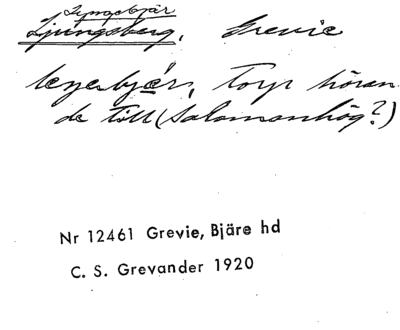 Lyngebjär
Ljungsberg, Grevie
lengebjär, Torp höran-
de till (Salomonhög?)
Nr 12461 Grevie, Bjäre hd
C. S. Grevander 1920